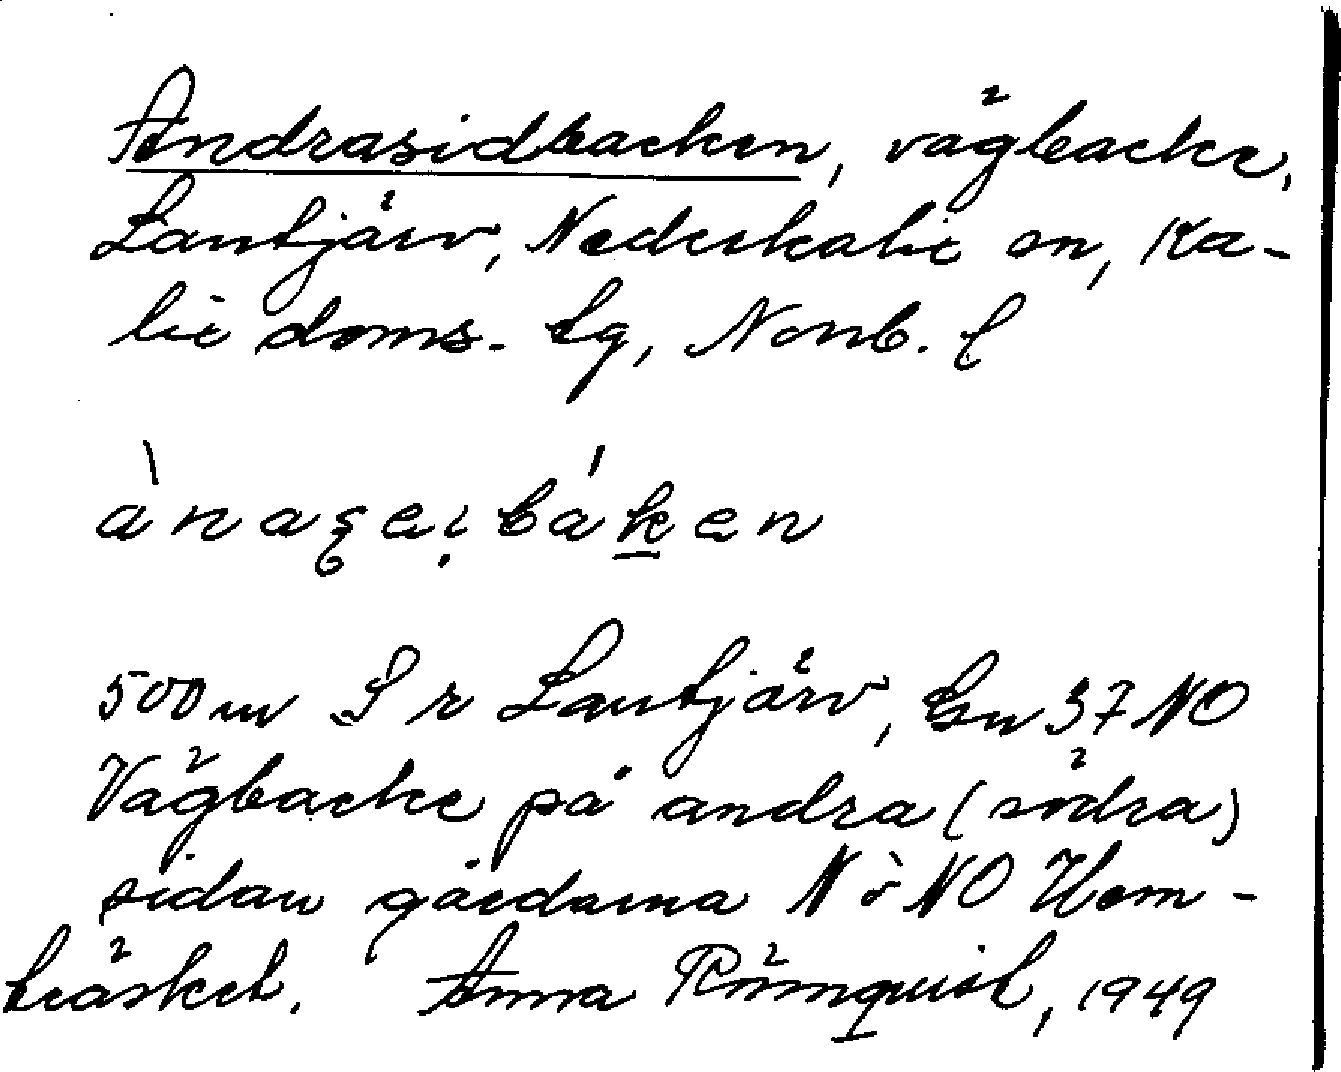 Andrasidbacken, vägbacke,
Lantjärv, Nederkalix sn, Ka-
lix doms. tg, Norrb. l
ànaʂei̩báken
500 m S r Lantjärv, Gn 37 NO
Vägbacke på andra (södra)
sidan gårdarna N o NO Hem-
träsket. Anna Rönnqvist, 1949